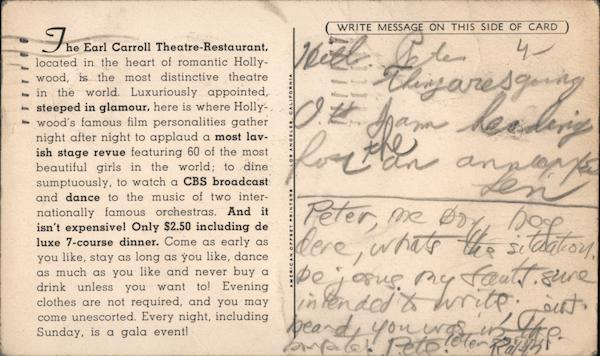 The Earl Carroll Theatre-Restaurant,
located in the heart of romantic Holly-
wood, is the most distinctive theatre
in the world. Luxuriously appointed,
steeped in glamour, here is where Holly-
wood's famous film personalities gather
night after night to applaud a most lav-
ish stage revue featuring 60 of the most
beautiful girls in the world; to dine
sumptuously, to watch a CBS broadcast
and dance to the music of two inter-
nationally famous orchestras. And it
isn't expensive! Only $2.50 including de
luxe 7-course dinner. Come as early as
you like, stay as long as you like, dance
as much as you like and never buy a
drink unless you want to! Evening
clothes are not required, and you may
come unescorted. Every night, including
Sunday, is a gala event!
AMERICAN OFFSET PRINTERS LOS ANGELES, CALIFORNIA
WRITE MESSAGE ON THIS SIDE OF CARD
Pete
Things are going
heading
the
an
Peter, me boy,
here, whats the situation.
my fault. sure
intended to write. just
heard, you was in the
Pete. Peter Ralph